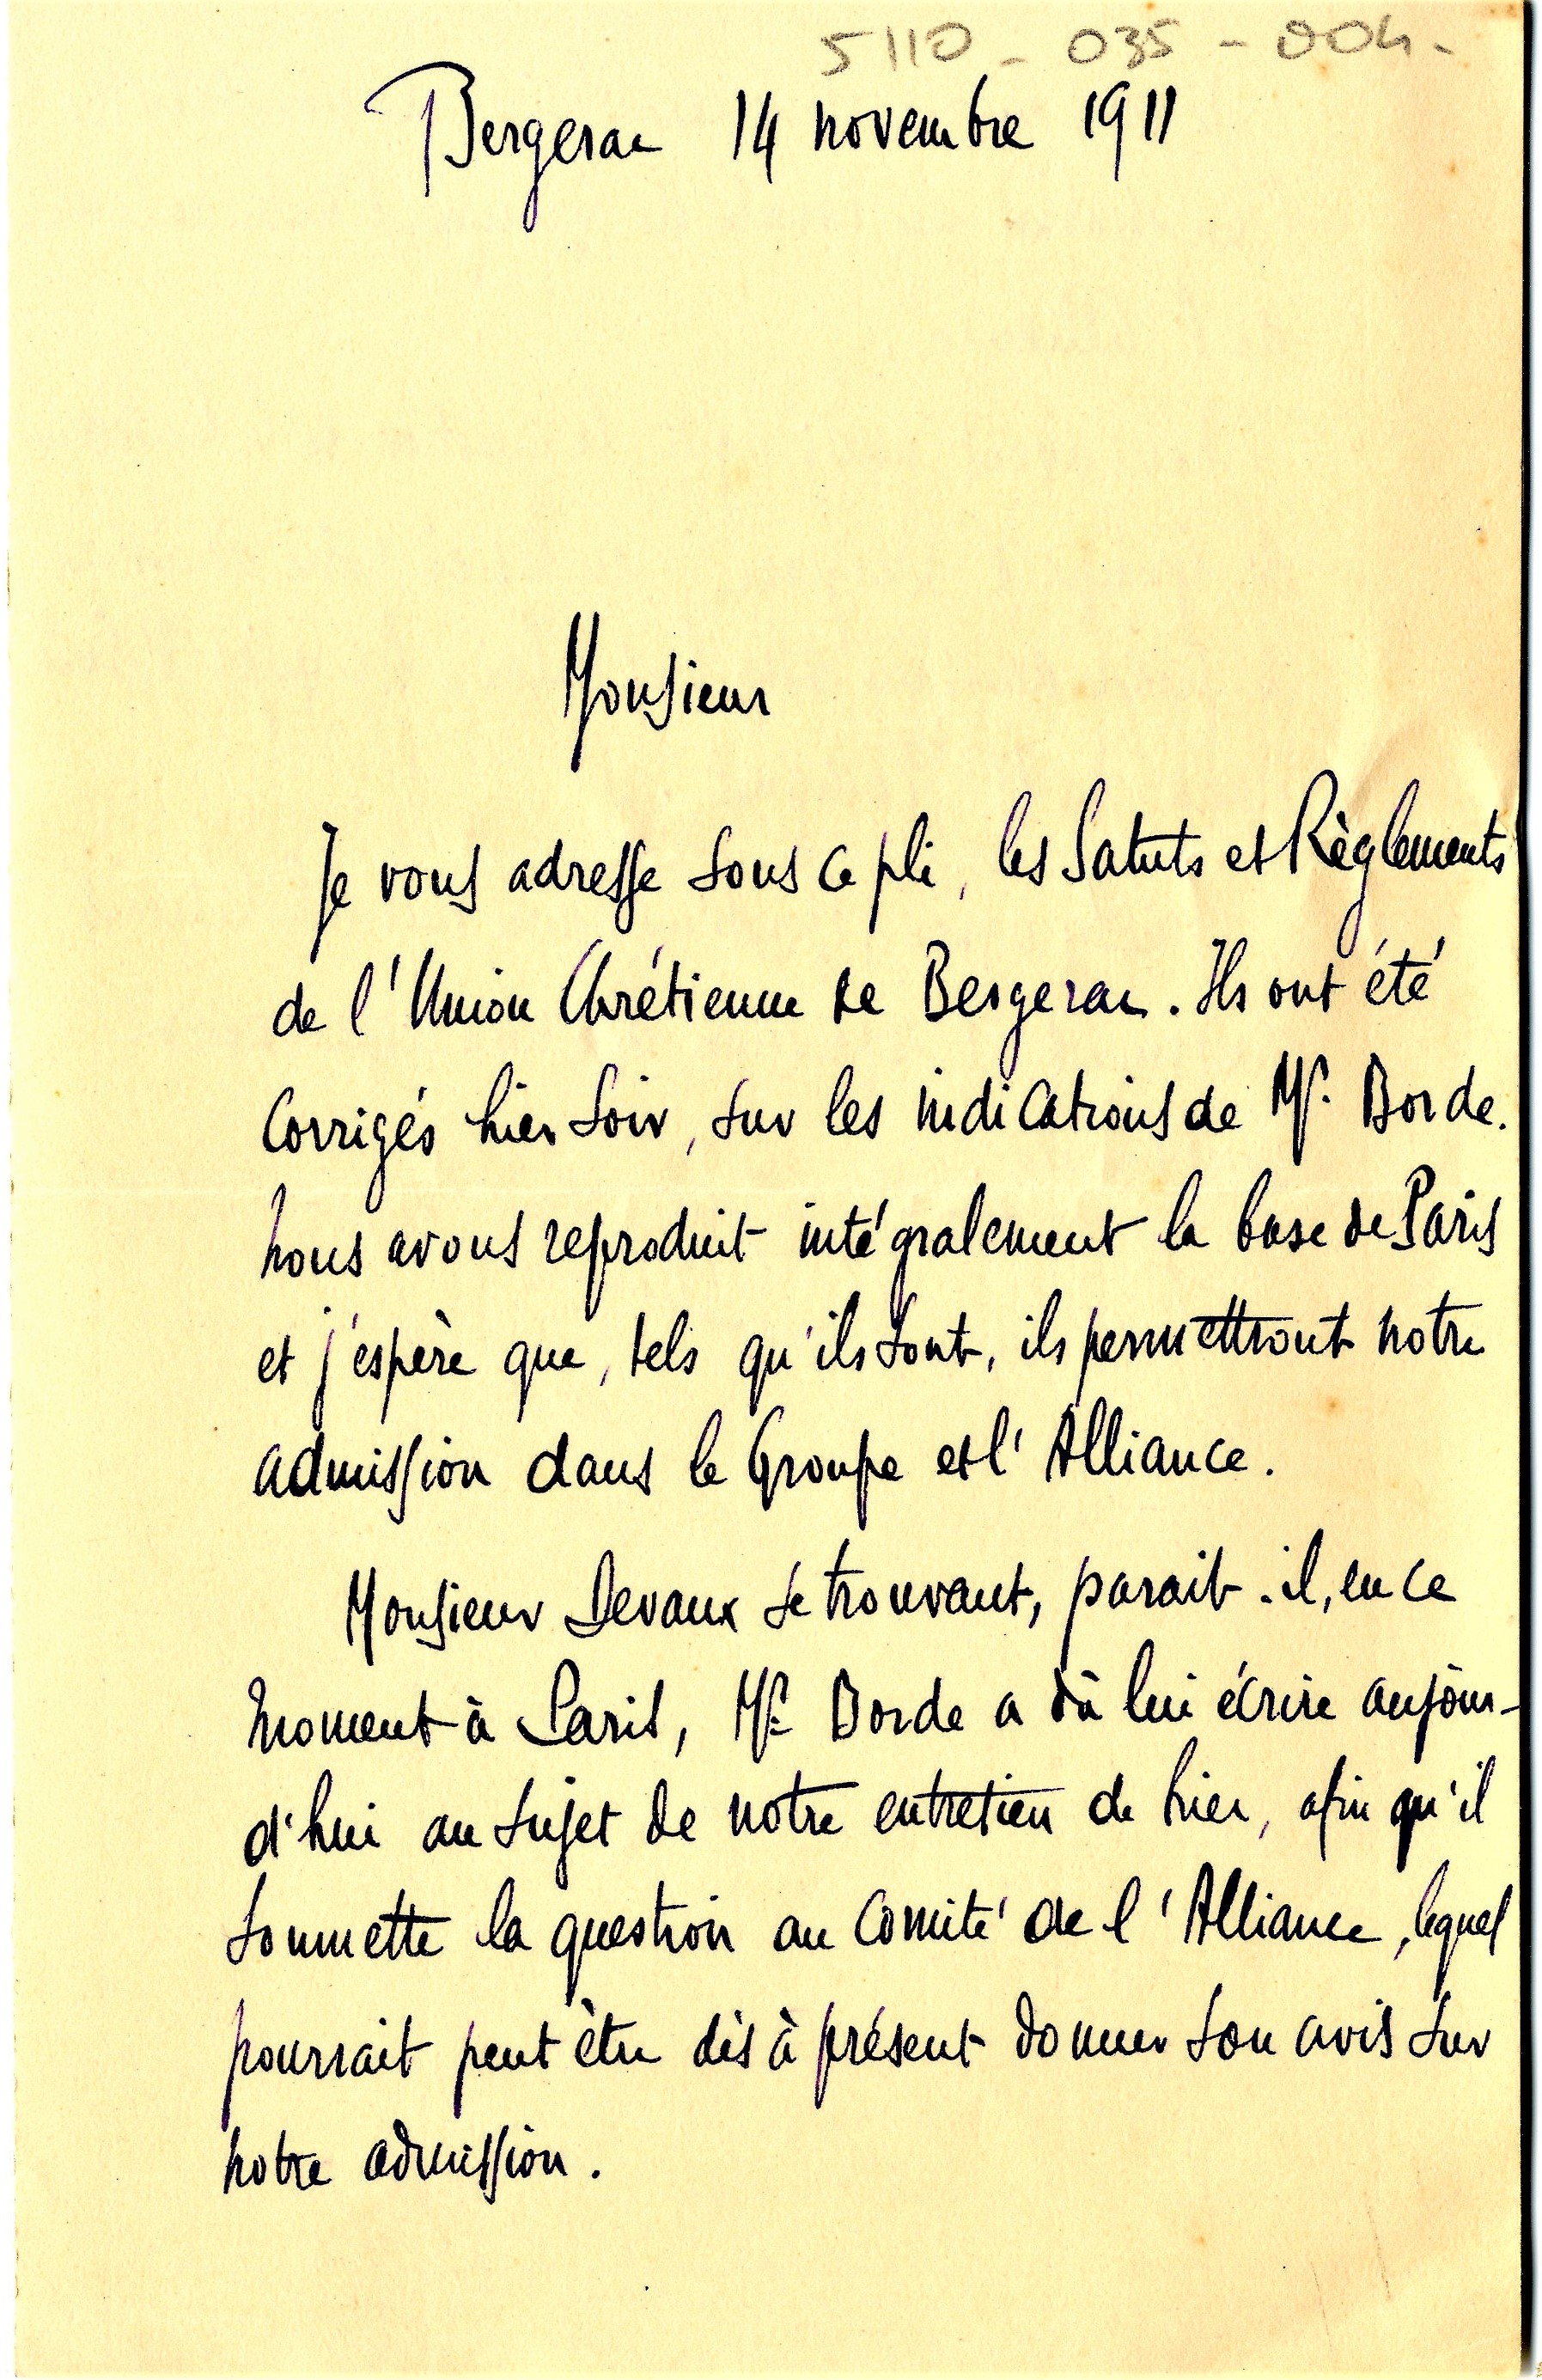 5110 - 035 - 004 -
Bergerac 14 novembre 1911
Monsieur
Je vous adresse sous ce pli, les Satuts et Règlements
de l'Union Chrétienne de Bergerac. Ils ont été
corrigés hier soir, sur les indications de Mr. Borde.
nous avons reproduit intégralement la base de Paris
et j'espère que, tels qu'ils sont, ils permettront notre
admission dans le Groupe et l'Alliance.
Monsieur Devaux se trouvant, parait-il, en ce
moment à Paris, Mr. Borde a dû lui écrire aujour-
d'hui au sujet de notre entretien de hier, afin qu'il
soumette la question au Comité de l'Alliance, lequel
pourrait peut être dès à présent donner son avis sur
notre admission.